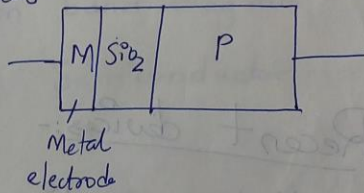 M SiO2 P
Metal
electrode